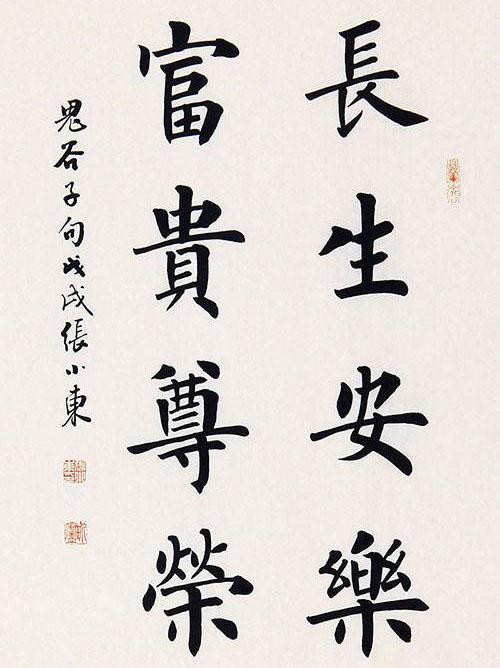 長生安樂
富貴尊榮
鬼谷子句戊戌張小東